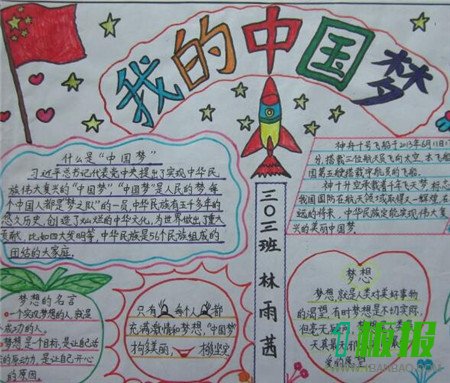 我的中国梦
什么是“中国梦”
习近平总书记代表党中央提出了实现中华民
族伟大复兴的“中国梦”“中国梦”是人民的梦,每
个中国人都是“梦之队”的一员,中华民族有五千多年的
悠久历史,创造了灿烂的中华文化,为世界做出了重大
贡献,比如四大发明等,中华民族是56个民族组成的
团结的大家庭。
神舟十号飞船于2013年6月11日1
分,搭载三位航天员飞向太空,本飞船
国第五艘搭载宇航员的飞船。
神十升空承载着千年飞天梦,标志
我国国防在航天领域取得又一辉煌,在
远的将来,中华民族定能实现伟大复
兴的美丽中国梦。
三〇三班 林雨茜
梦想的名言
一个实现梦想的人,就是
成功的人。
梦想是一个目标,是让自己活
的原动力,是让自己开心
的原因。
只有每个人都
充满激情和梦想,“中国梦”
才多美丽,
梦想
梦想,就是人类对美好事物
的渴望,有时梦想是不切实际,
但毫无
天真
板报